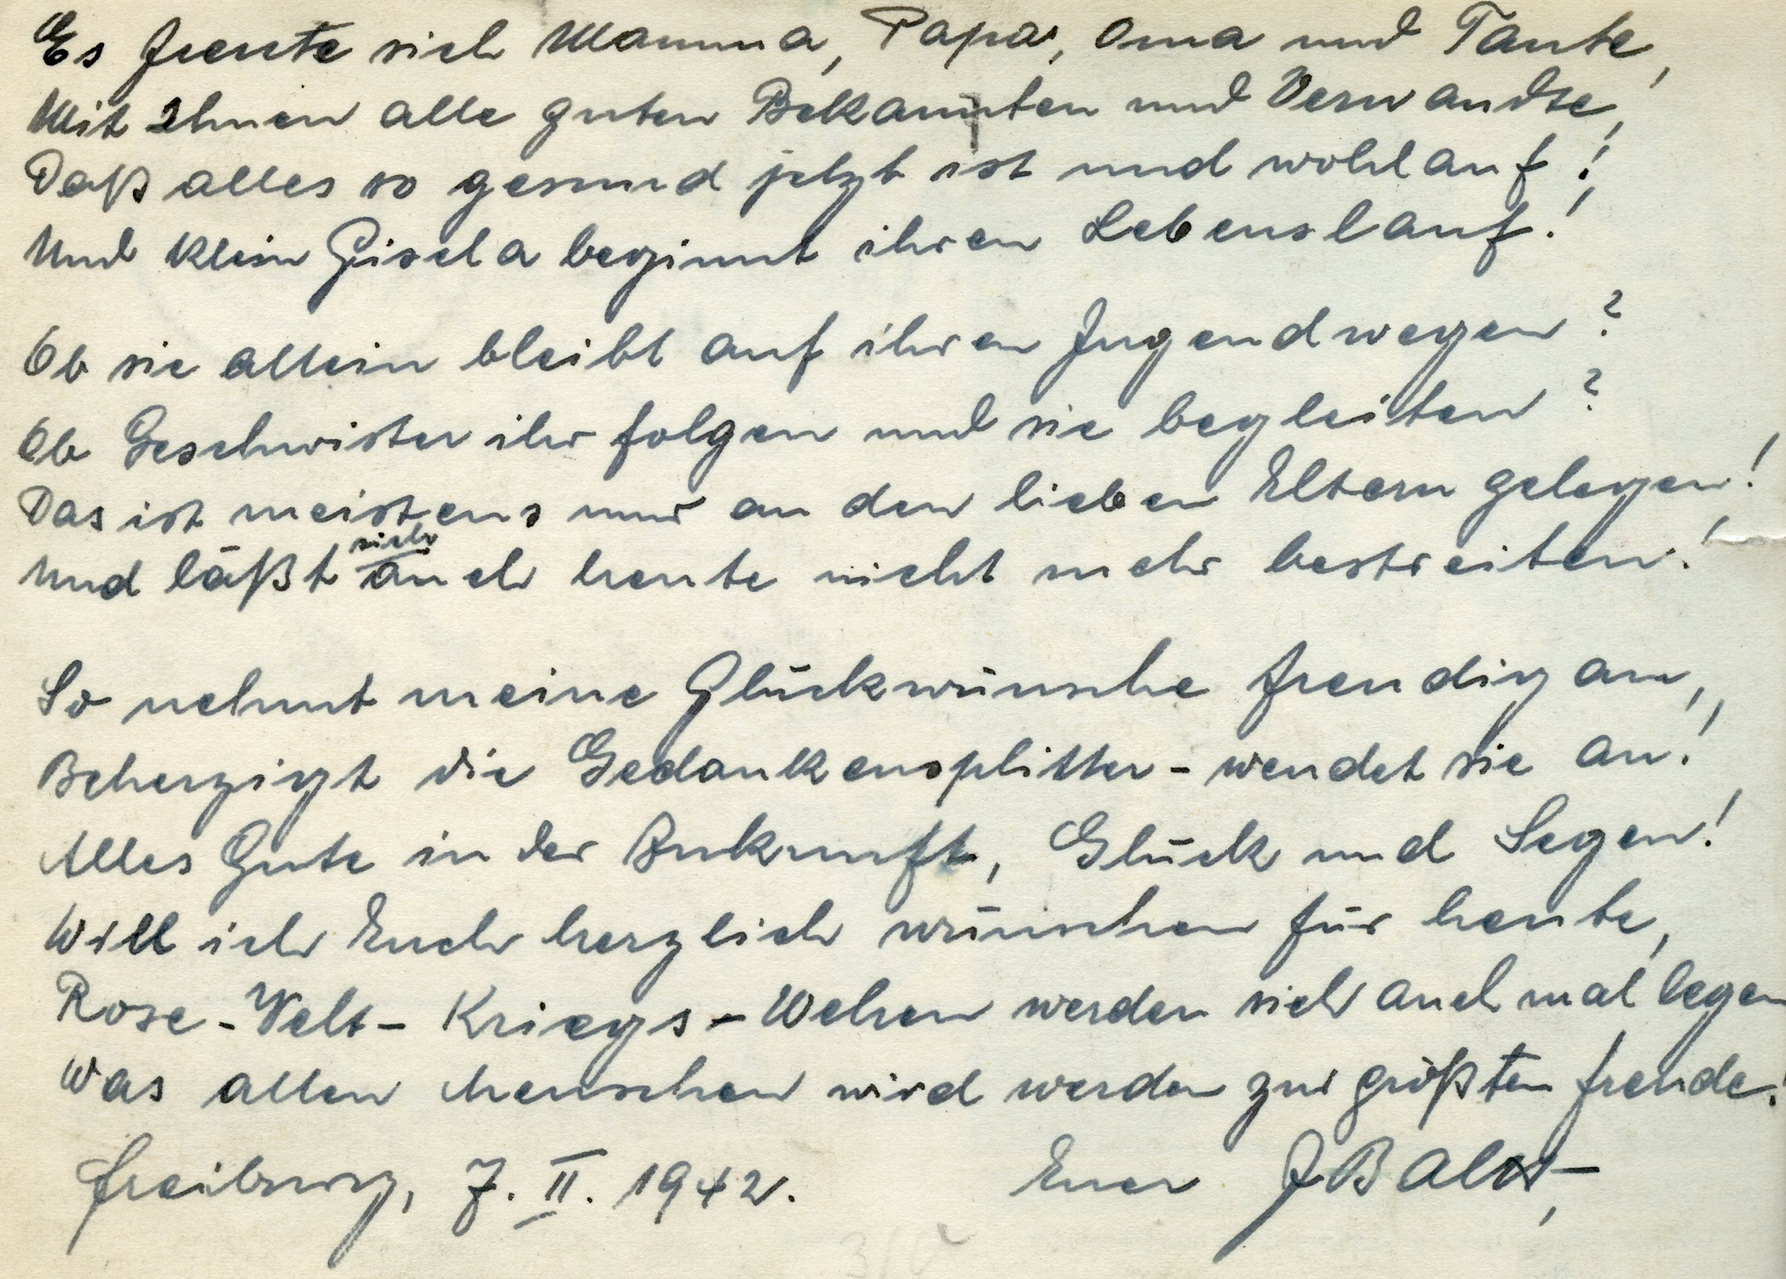 Es freute sich Mamma, Papa, Oma und Tante,
Mit Ihnen alle guten Bekannten und Verwandte,
Daß alles so gesund jetzt ist und wohlauf!
Und klein Gisela beginnt ihren Lebenslauf!
Ob sie allein bleibt auf ihren Jugendwegen?
Ob Geschwister ihr folgen und sie begleiten?
Das ist meistens nur an den lieben Eltern gelegen!
Und läßt sich auch heute nicht mehr bestreiten!
So nehmt meine Glückwünsche freudig an,
Beherzigt die Gedankensplitter - wendet sie an!
Alles Gute in der Zukunft, Glück und Segen!
Will ich Euch herzlich wünschen für heute,
Rose-Velt-Kriegs-Wehen werden sich auch mal legen
Was allen Menschen wird werden zur größten Freude!
Freiburg, 7. II. 1942. Euer J